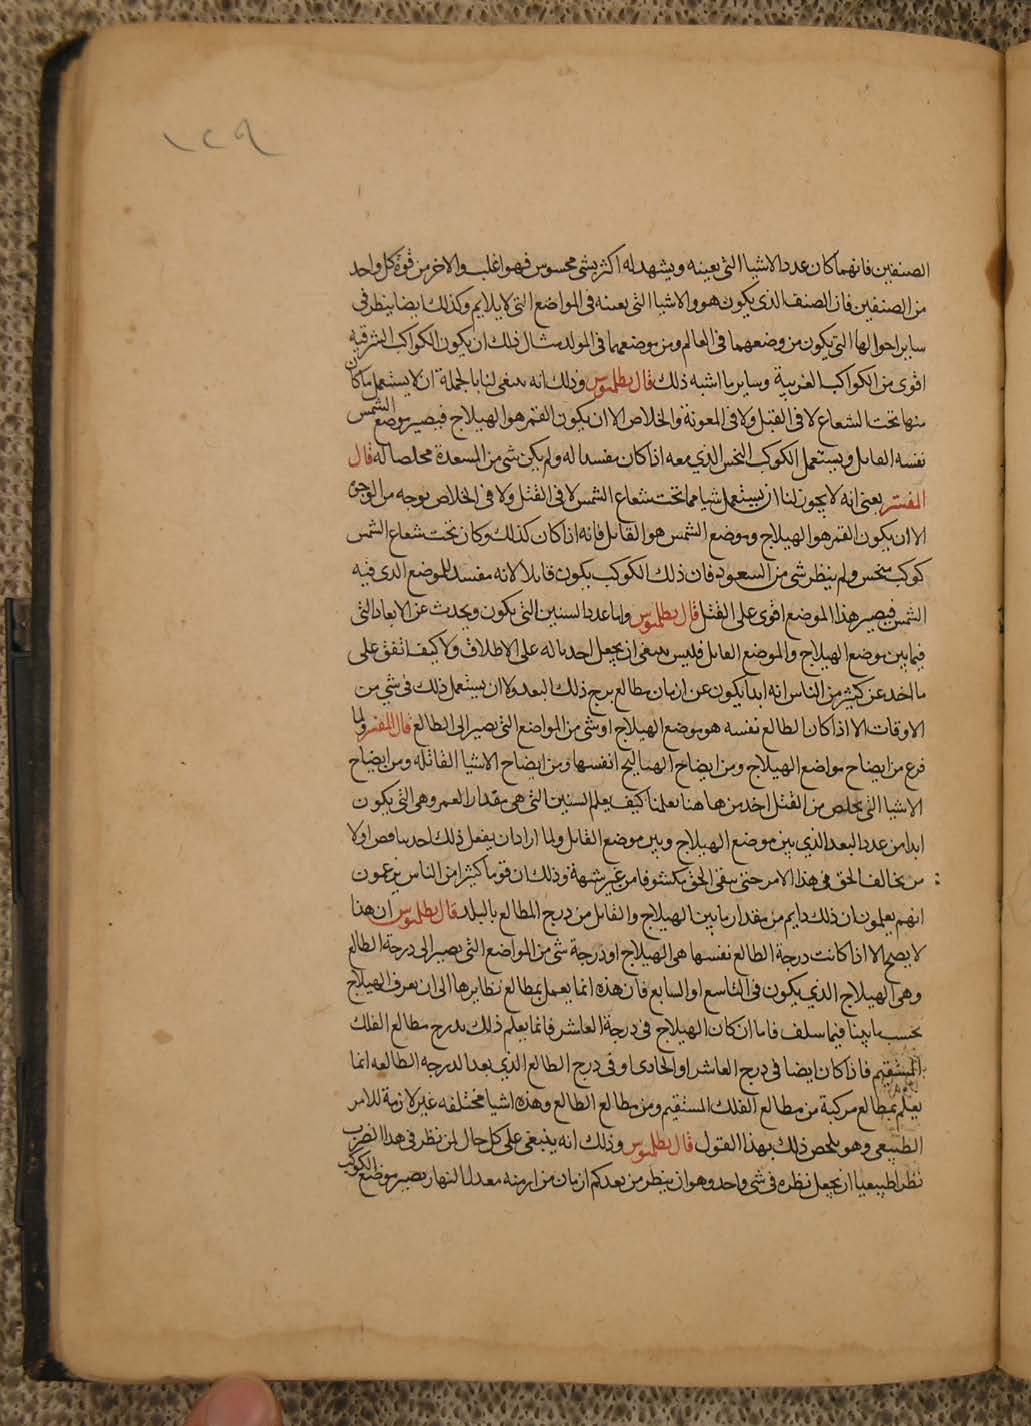 الصنفين فانهما كان عدد الاشيا التى يعينه ويشهد له اكثر بشى محسوس فهو اغلب والاخر من قوة كل واحد
من الصنفين فان الصنف الذى يكون هو والاشيا التى بعينه فى المواضع التى لا يلايم وكذلك ايضا ينظر فى
ساير احوالها التى يكون من وضعهما فى العالم ومن موضعهما فى المولد مثال ذلك ان يكون الكواكب الشرقيه
اقوى من الكواكب الغربية وساير ما اشبه ذلك قال بطلميوس وذلك انه ينبغى لنا بالجملة ان لا يستعمل ما كان
منها تحت الشعاع لا فى القتل ولا فى المعونة والخلاص الا ان يكون القمر هو الهيلاج فيصير موضع الشمس
نفسه القاتل ويستعمل الكوكب النحس الذى معه اذا كان مفسدا له ولم يكن شى من المسعدة مخلصا له قال
المفسر يعنى انه لا يجوز لنا ان يستعمل شيا مما تحت شعاع الشمس لا فى القتل ولا فى الخلاص بوجه من الوجوه
الا ان يكون القمر هو الهيلاج وموضع الشمس هو القاتل فانه اذا كان كذلك وكان تحت شعاع الشمس
كوكب منحس ولم ينظر شى من السعود فان ذلك الكوكب يكون قاتلا لانه مفسد للموضع الذى فيه
الشمس فيصير هذا الموضع اقوى على القتل قال بطلميوس واما عدد السنين التى يكون ويحدث عن الابعاد التى
فيما بين موضع الهيلاج والموضع القاتل فليس ينبغى ان يجعل احد ماله على الاطلاق ولا كيف اتفق على
ما اخد عن كثير من الناس انه ابدا يكون عن ازمان مطالع برج ذلك البعد ولا ان يستعمل ذلك فى شى من
الاوقات الا اذا كان الطالع نفسه هو موضع الهيلاج او شى من المواضع التى يصير الى الطالع قال المفسر ولما
فرغ من ايضاح مواضع الهيلاج ومن ايضاح الهياليج انفسها ومن ايضاح الاشيا القاتله ومن ايضاح
الاشيا التى يخلص من القتل اخد من هاهنا يعلمنا كيف يعلم السنين التى هى مقدار العمر وهى التى يكون
ابدا من عدد البعد الذى بين موضع الهيلاج وبين موضع القاتل ولما اراد ان يفعل ذلك اخد يناقص اولا
من يخالف الحق فى هذا الامر حتى يبقى الحق مكشوفا من غير شبهة وذلك ان قوما كثيرا من الناس يزعمون
انهم يعلمون ان ذلك دايم من مقدار ما بين الهيلاج والقاتل من درج المطالع بالبلد قال بطلميوس ان هذا
لا يصح الا اذا كانت درجة الطالع نفسها هى الهيلاج او درجة شى من المواضع التى يصير الى درجة الطالع
وهى الهيلاج الذى يكون فى التاسع او السابع فان هذه انما يعمل بمطالع نظايرها الى ان يعرف الهيلاج
بحسب ما بينا فيما سلف فاما ان كان الهيلاج فى درجة العاشر فانما يعلم ذلك بدرج مطالع الفلك
المستقيم فاذا كان ايضا فى درج العاشر او الحادى او فى درج الطالع الذى بعد الدرجه الطالعه انما
يعلم بمطالع مركبة من مطالع الفلك المستقيم ومن مطالع الطالع وهذه اشيا مختلفه غير لازمة للامر
الطبيعى وهو يلخص ذلك بهذا القول قال بطلميوس وذلك انه ينبغى على كل حال لمن نظر فى هذا الضرب
نظرا طبيعيا ان يجعل نظره فى شى واحد وهو ان ينظر من بعد كم ازمان من ازمنه معدل النهار يصير موضع الكوكب